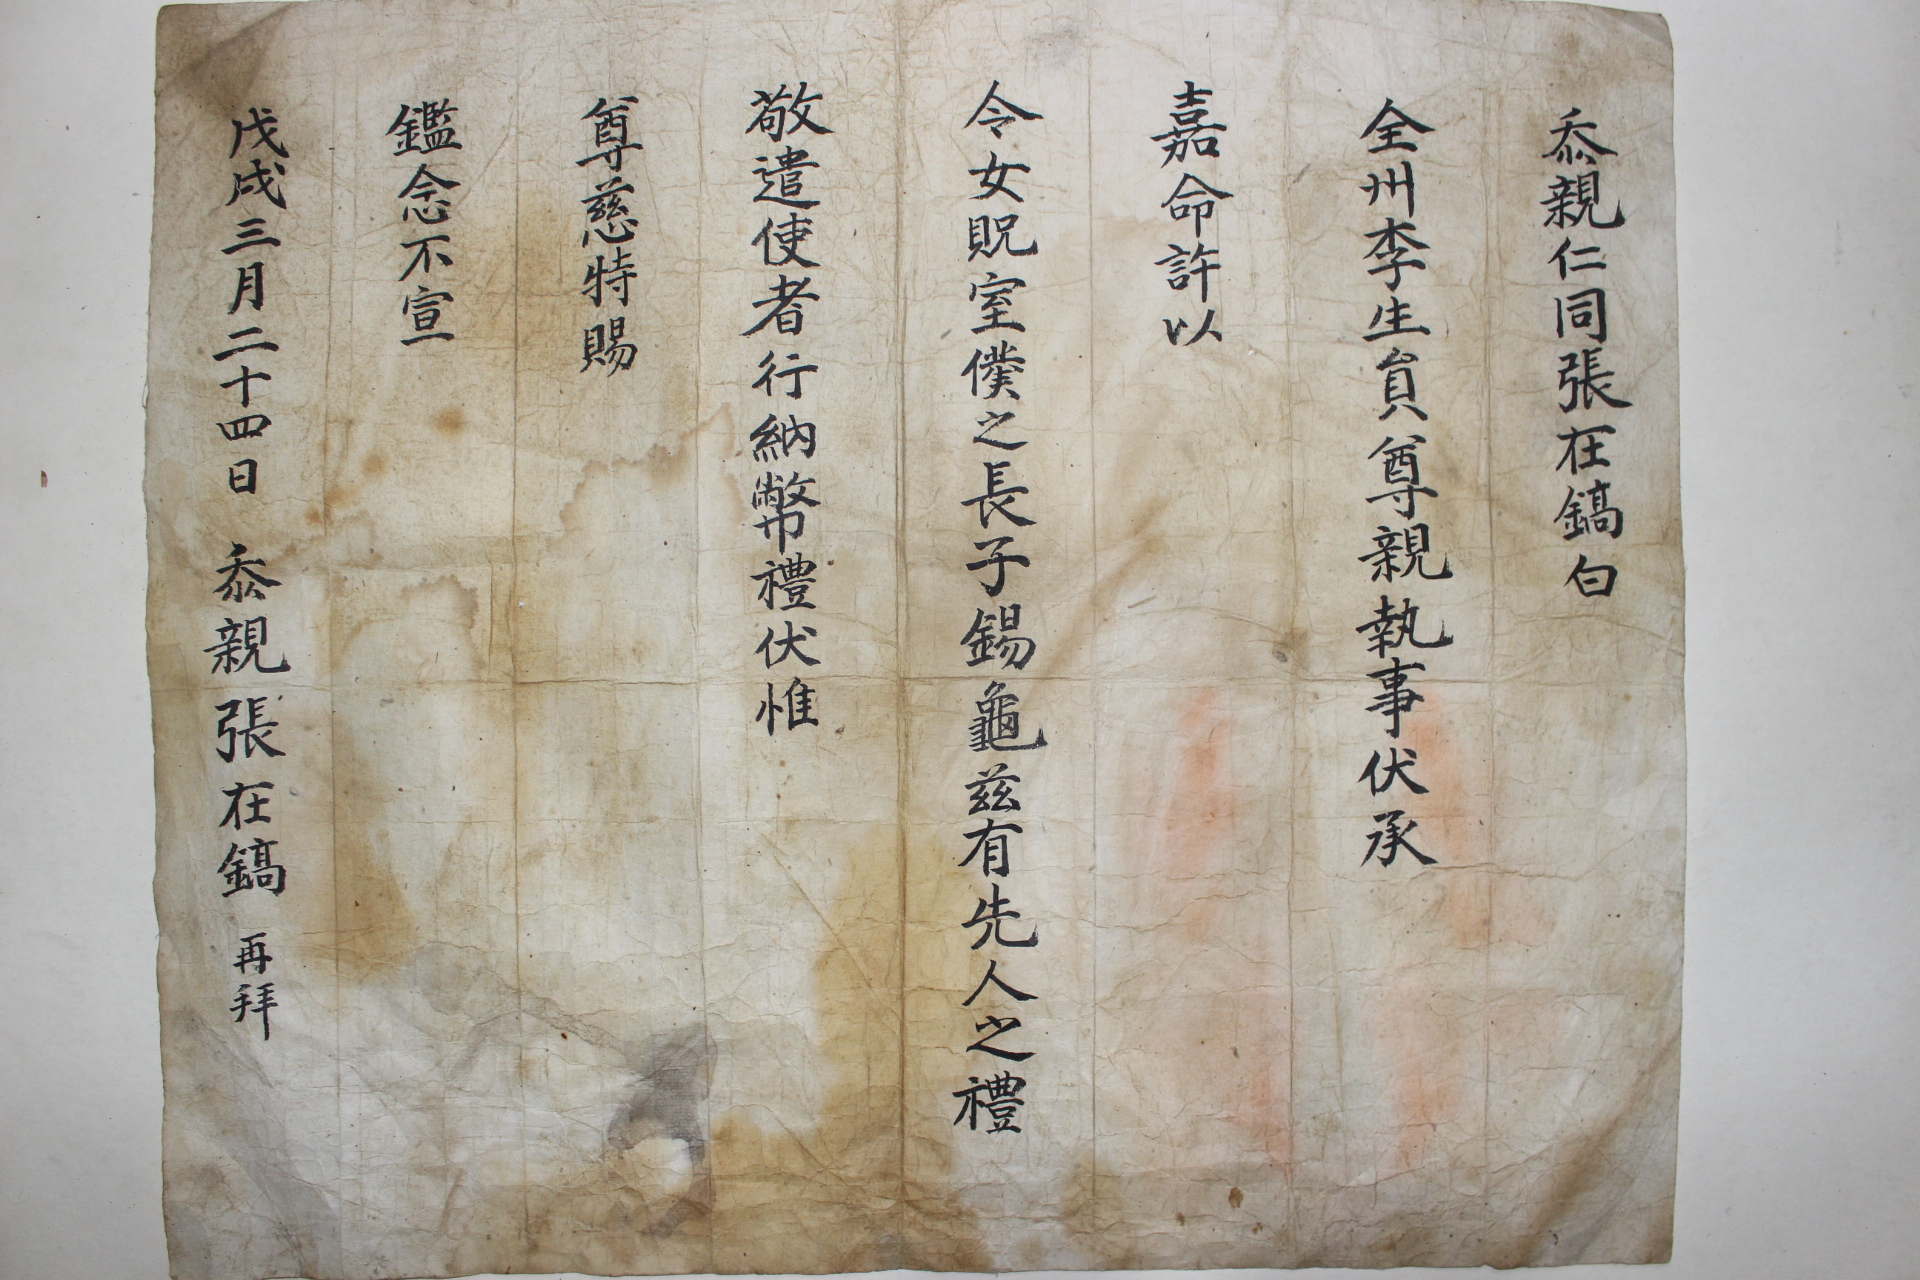 忝親仁同張在鎬白
全州李生員尊親執事伏承
嘉命許以
令女貺室僕之長子錫龜玆有先人之禮
敬遣使者行納幣禮伏惟
尊慈特賜
鑑念不宣
戊戌三月二十四日 忝親張在鎬 再拜